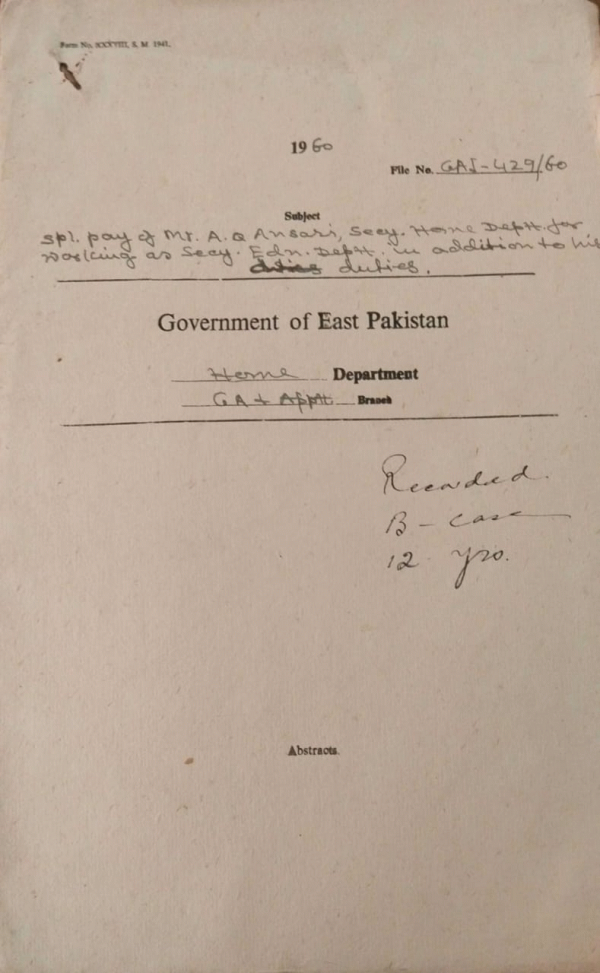 Form No. XXXVIII, S. M. 1942.
1960
File No. GAI-429/60
Subject
spl. pay of Mr. A. Q Ansari, Secy. Home Deptt. for
working as Secy. Edn. Deptt. in addition to his
duties.
Government of East Pakistan
Home Department
GA & Apptt Branch
Recorded.
B - Case
12 yrs.
Abstracts.